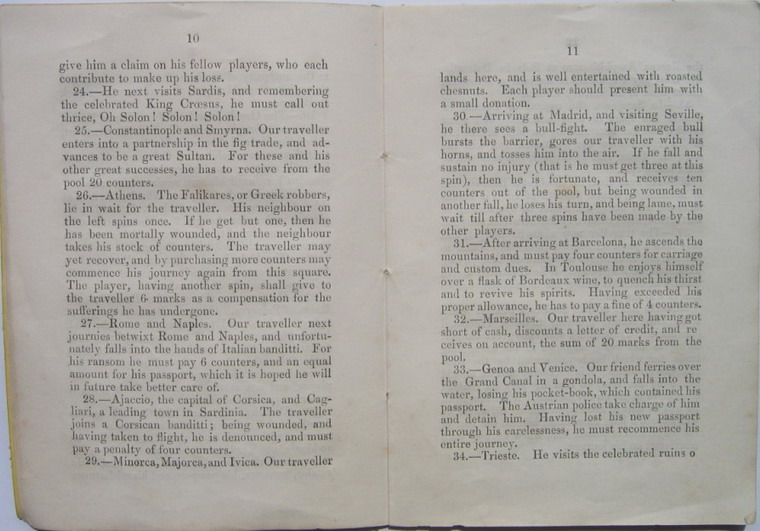 10
give him a claim on his fellow players, who each
contribute to make up his loss.
24.—He next visits Sardis, and remembering
the celebrated King Crœsus, he must call out
thrice, Oh Solon! Solon! Solon!
25.—Constantinople and Smyrna. Our traveller
enters into a partnership in the fig trade, and ad-
vances to be a great Sultan. For these and his
other great successes, he has to receive from the
pool 20 counters.
26.—Athens. The Falikares, or Greek robbers,
lie in wait for the traveller. His neighbour on
the left spins once. If he get but one, then he
has been mortally wounded, and the neighbour
takes his stock of counters. The traveller may
yet recover, and by purchasing more counters may
commence his journey again from this square.
The player, having another spin, shall give to
the traveller 6 marks as a compensation for the
sufferings he has undergone.
27.—Rome and Naples. Our traveller next
journies betwixt Rome and Naples, and unfortu-
nately falls into the hands of Italian banditti. For
his ransom he must pay 6 counters, and an equal
amount for his passport, which it is hoped he will
in future take better care of.
28.—Ajaccio, the capital of Corsica, and Cag-
liari, a leading town in Sardinia. The traveller
joins a Corsican banditti; being wounded, and
having taken to flight, he is denounced, and must
pay a penalty of four counters.
29.—Minorca, Majorca, and Ivica. Our traveller
11
lands here, and is well entertained with roasted
chesnuts. Each player should present him with
a small donation.
30 —Arriving at Madrid, and visiting Seville,
he there sees a bull-fight. The enraged bull
bursts the barrier, gores our traveller with his
horns, and tosses him into the air. If he fall and
sustain no injury (that is he must get three at this
spin), then he is fortunate, and receives ten
counters out of the pool, but being wounded in
another fall, he loses his turn, and being lame, must
wait till after three spins have been made by the
other players.
31.—After arriving at Barcelona, he ascends the
mountains, and must pay four counters for carriage
and custom dues. In Toulouse he enjoys himself
over a flask of Bordeaux wine, to quench his thirst
and to revive his spirits. Having exceeded his
proper allowance, he has to pay a fine of 4 counters.
32.—Marseilles. Our traveller here having got
short of cash, discounts a letter of credit, and re
ceives on account, the sum of 20 marks from the
pool.
33.—Genoa and Venice. Our friend ferries over
the Grand Canal in a gondola, and falls into the
water, losing his pocket-book, which contained his
passport. The Austrian police take charge of him
and detain him. Having lost his new passport
through his carelessness, he must recommence his
entire journey.
34.—Trieste. He visits the celebrated ruins o